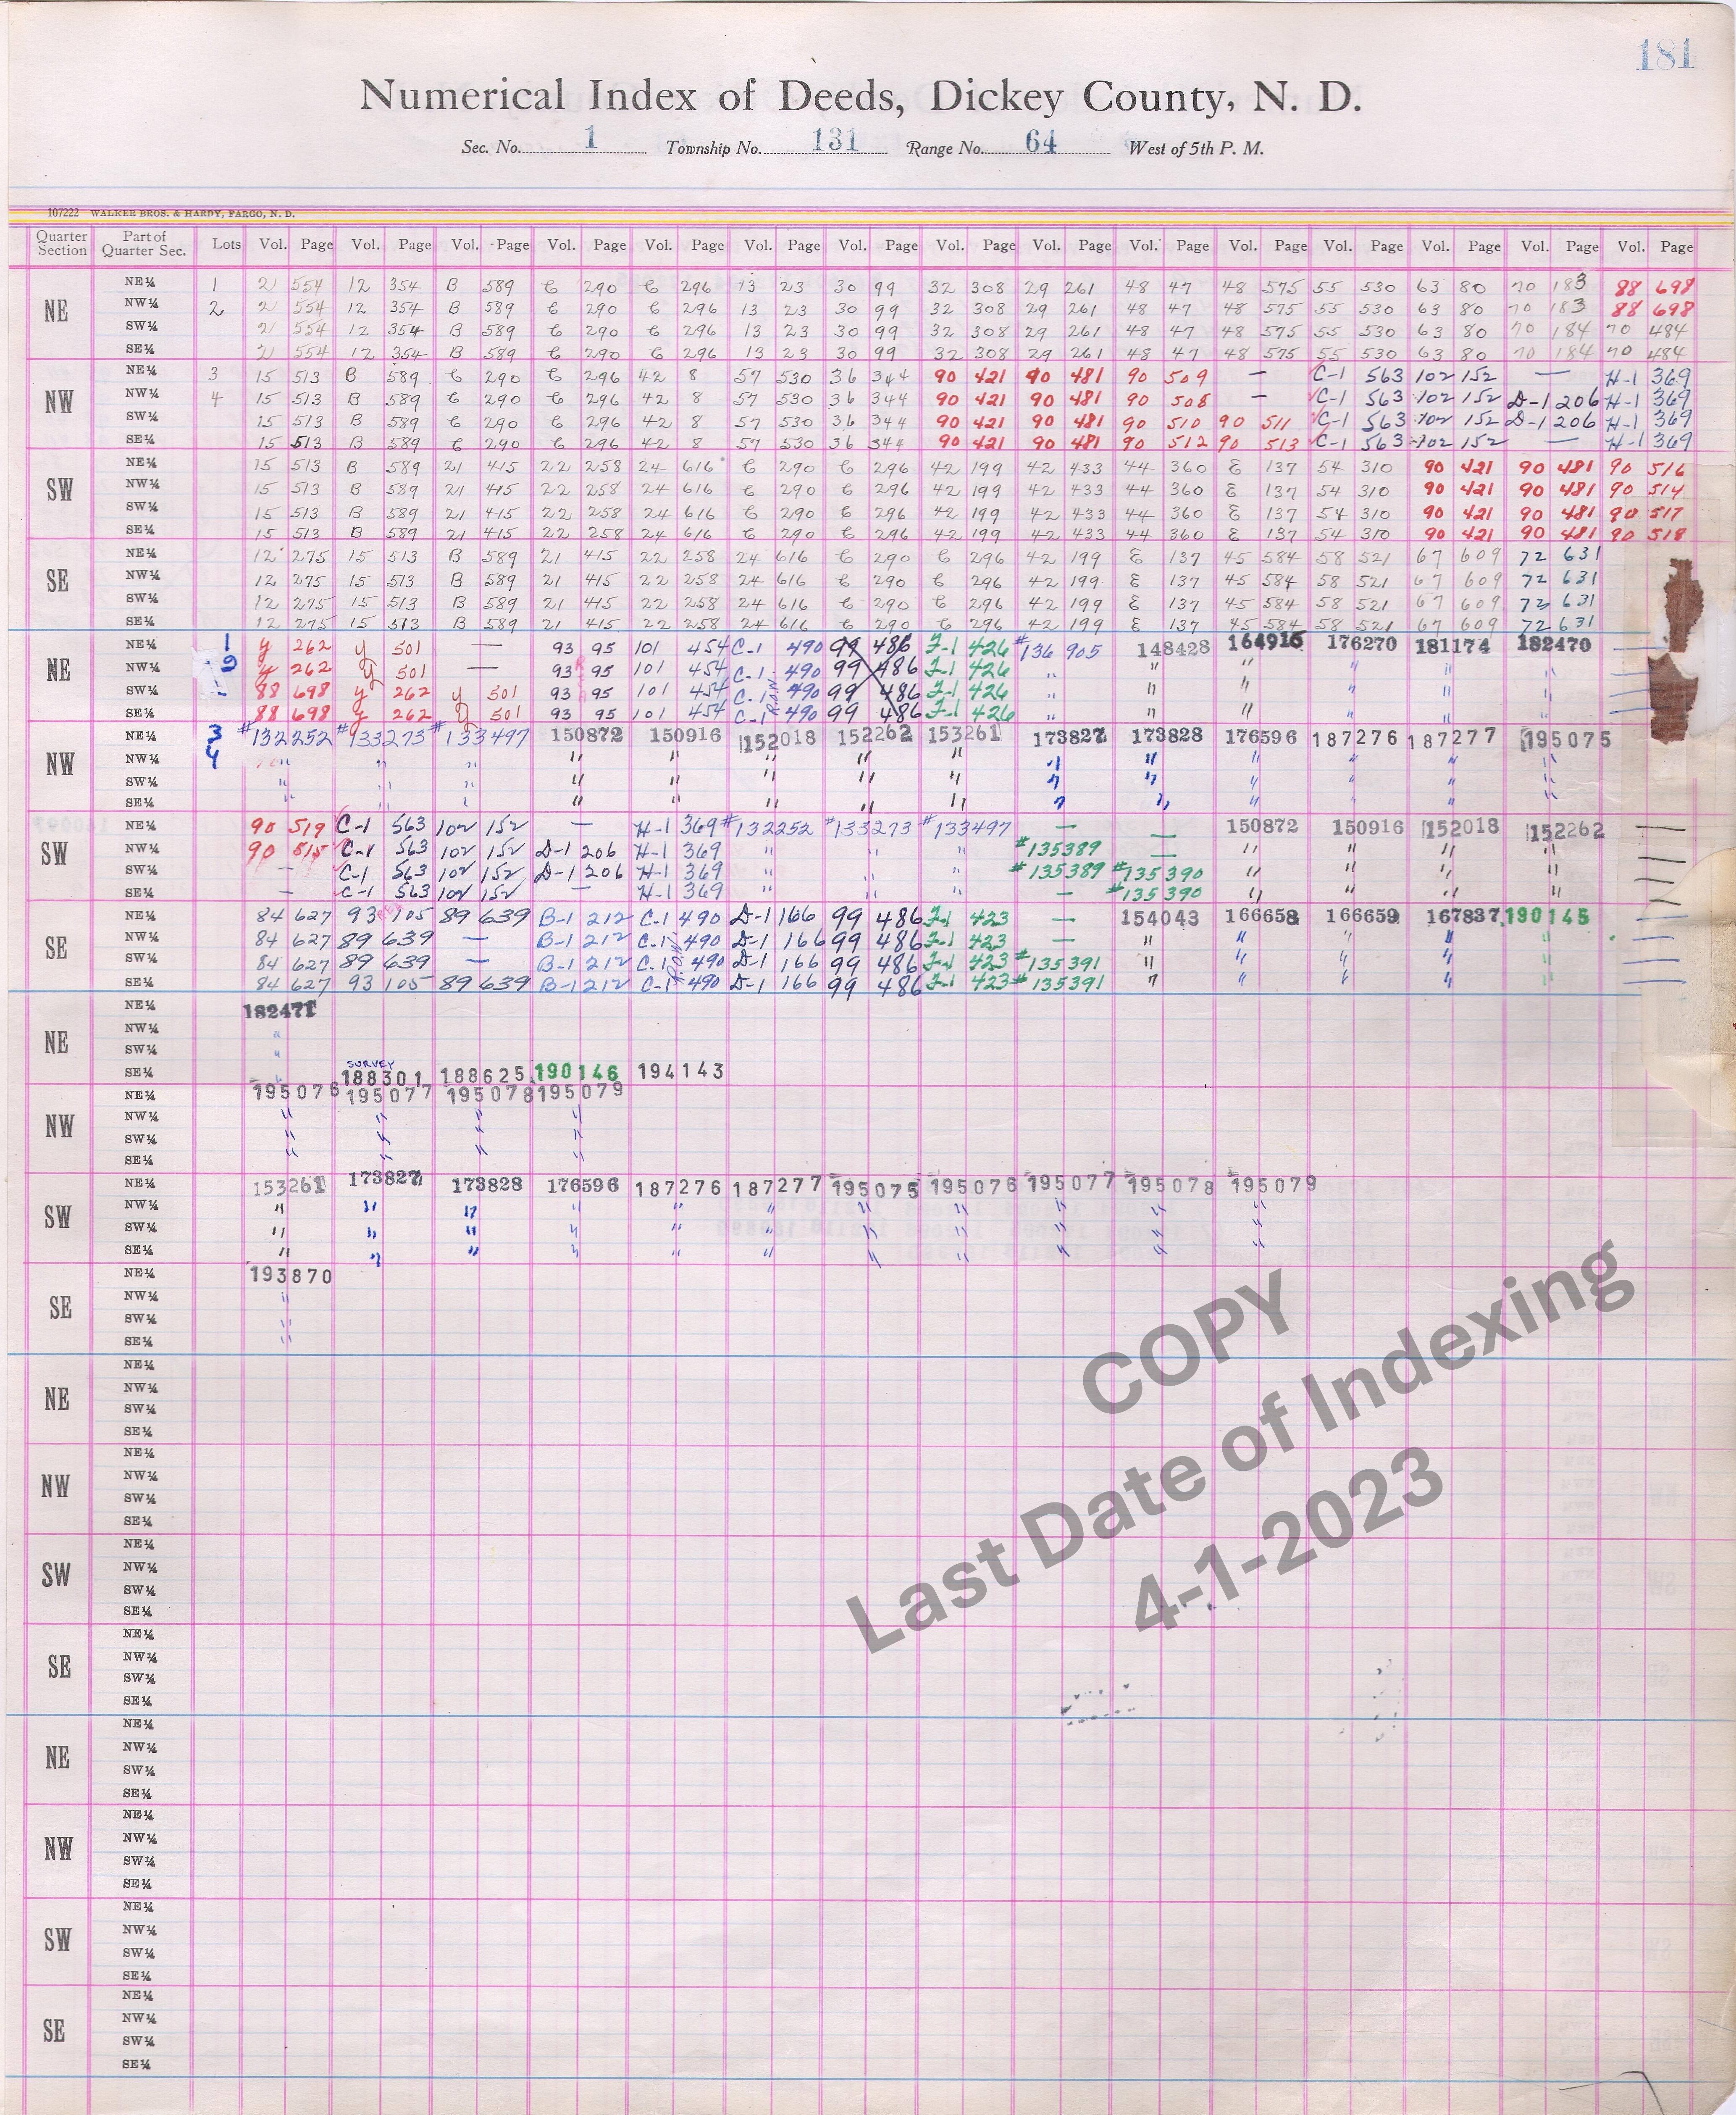 181
Numerical Index of Deeds, Dickey County, N. D.
Sec. No. 1 Township No. 131 Range No. 64 West of 5th P. M.
107222 WALKER BROS. & HARDY, FARGO, N. D.
Quarter Section Part of Quarter Sec. Lots Vol. Page Vol. Page Vol. Page Vol. Page Vol. Page Vol. Page Vol. Page Vol. Page Vol. Page Vol. Page Vol. Page Vol. Page Vol. Page Vol. Page Vol. Page
NE
NE¼ 1 2 554 12 354 B 589 C 290 C 296 13 23 30 99 32 308 29 261 48 47 48 575 55 530 63 80 70 183 88 698
NW¼ 2 2 554 12 354 B 589 C 290 C 296 13 23 30 99 32 308 29 261 48 47 48 575 55 530 63 80 70 183 88 698
SW¼ 2 554 12 354 B 589 C 290 C 296 13 23 30 99 32 308 29 261 48 47 48 575 55 530 63 80 70 184 70 484
SE¼ 2 554 12 354 B 589 C 290 C 296 13 23 30 99 32 308 29 261 48 47 48 575 55 530 63 80 70 184 70 484
NW
NE¼ 3 15 513 B 589 C 290 C 296 42 8 57 530 36 344 90 421 90 481 90 509 — C-1 563 102 152 — H-1 369
NW¼ 4 15 513 B 589 C 290 C 296 42 8 57 530 36 344 90 421 90 481 90 508 — C-1 563 102 152 D-1 206 H-1 369
SW¼ 15 513 B 589 C 290 C 296 42 8 57 530 36 344 90 421 90 481 90 510 90 511 C-1 563 102 152 D-1 206 H-1 369
SE¼ 15 513 B 589 C 290 C 296 42 8 57 530 36 344 90 421 90 481 90 512 90 513 C-1 563 102 152 — H-1 369
SW
NE¼ 15 513 B 589 21 415 22 258 24 616 C 290 C 296 42 199 42 433 44 360 E 137 54 310 90 421 90 481 90 516
NW¼ 15 513 B 589 21 415 22 258 24 616 C 290 C 296 42 199 42 433 44 360 E 137 54 310 90 421 90 481 90 514
SW¼ 15 513 B 589 21 415 22 258 24 616 C 290 C 296 42 199 42 433 44 360 E 137 54 310 90 421 90 481 90 517
SE¼ 15 513 B 589 21 415 22 258 24 616 C 290 C 296 42 199 42 433 44 360 E 137 54 310 90 421 90 481 90 518
SE
NE¼ 12 275 15 513 B 589 21 415 22 258 24 616 C 290 C 296 42 199 E 137 45 584 58 521 67 609 72 631
NW¼ 12 275 15 513 B 589 21 415 22 258 24 616 C 290 C 296 42 199 E 137 45 584 58 521 67 609 72 631
SW¼ 12 275 15 513 B 589 21 415 22 258 24 616 C 290 C 296 42 199 E 137 45 584 58 521 67 609 72 631
SE¼ 12 275 15 513 B 589 21 415 22 258 24 616 C 290 C 296 42 199 E 137 45 584 58 521 67 609 72 631
NE
NE¼ 1 y 262 y 501 — 93 95 101 454 C-1 490 99 486 F-1 426 #136 905 148428 164916 176270 181174 182470
NW¼ 2 y 262 y 501 — 93 95 101 454 C-1 490 99 486 F-1 426 " " " " " "
SW¼ 88 698 y 262 y 501 93 95 101 454 C-1 490 99 486 F-1 426 " " " " " "
SE¼ 88 698 y 262 y 501 93 95 101 454 C-1 490 99 486 F-1 426 " " " " " "
NW
NE¼ 3 #132252 #133273 #133497 150872 150916 152018 152262 153261 173827 173828 176596 187276 187277 195075
NW¼ 4 " " " " " " " " " " " " " "
SW¼ " " " " " " " " " " " " " "
SE¼ " " " " " " " " " " " " " "
SW
NE¼ 90 519 C-1 563 102 152 — H-1 369 #132252 #133273 #133497 — — 150872 150916 152018 152262 —
NW¼ 90 515 C-1 563 102 152 D-1 206 H-1 369 " " " #135389 — " " " " —
SW¼ — C-1 563 102 152 D-1 206 H-1 369 " " " #135389 #135390 " " " " —
SE¼ — C-1 563 102 152 — H-1 369 " " " — #135390 " " " " —
SE
NE¼ 84 627 93 105 89 639 B-1 212 C-1 490 D-1 166 99 486 F-1 423 — 154043 166658 166659 167837 190145 —
NW¼ 84 627 89 639 — B-1 212 C-1 490 D-1 166 99 486 F-1 423 — " " " " " —
SW¼ 84 627 89 639 — B-1 212 C-1 490 D-1 166 99 486 F-1 423 #135391 " " " " " —
SE¼ 84 627 93 105 89 639 B-1 212 C-1 490 D-1 166 99 486 F-1 423 #135391 " " " " " —
NE
NE¼ 182471
NW¼ "
SW¼ "
SURVEY
SE¼ " 188301 188625 190146 194143
NW
NE¼ 195076 195077 195078 195079
NW¼ " " " "
SW¼ " " " "
SE¼ " " " "
SW
NE¼ 153261 173827 173828 176596 187276 187277 195075 195076 195077 195078 195079
NW¼ " " " " " " " " " " "
SW¼ " " " " " " " " " " "
SE¼ " " " " " " " " " " "
SE
NE¼ 193870
NW¼ "
SW¼ "
SE¼ "
NE
NE¼
NW¼
SW¼
SE¼
NW
NE¼
NW¼
SW¼
SE¼
SW
NE¼
NW¼
SW¼
SE¼
SE
NE¼
NW¼
SW¼
SE¼
NE
NE¼
NW¼
SW¼
SE¼
NW
NE¼
NW¼
SW¼
SE¼
SW
NE¼
NW¼
SW¼
SE¼
SE
NE¼
NW¼
SW¼
SE¼
COPY
Last Date of Indexing
4-1-2023